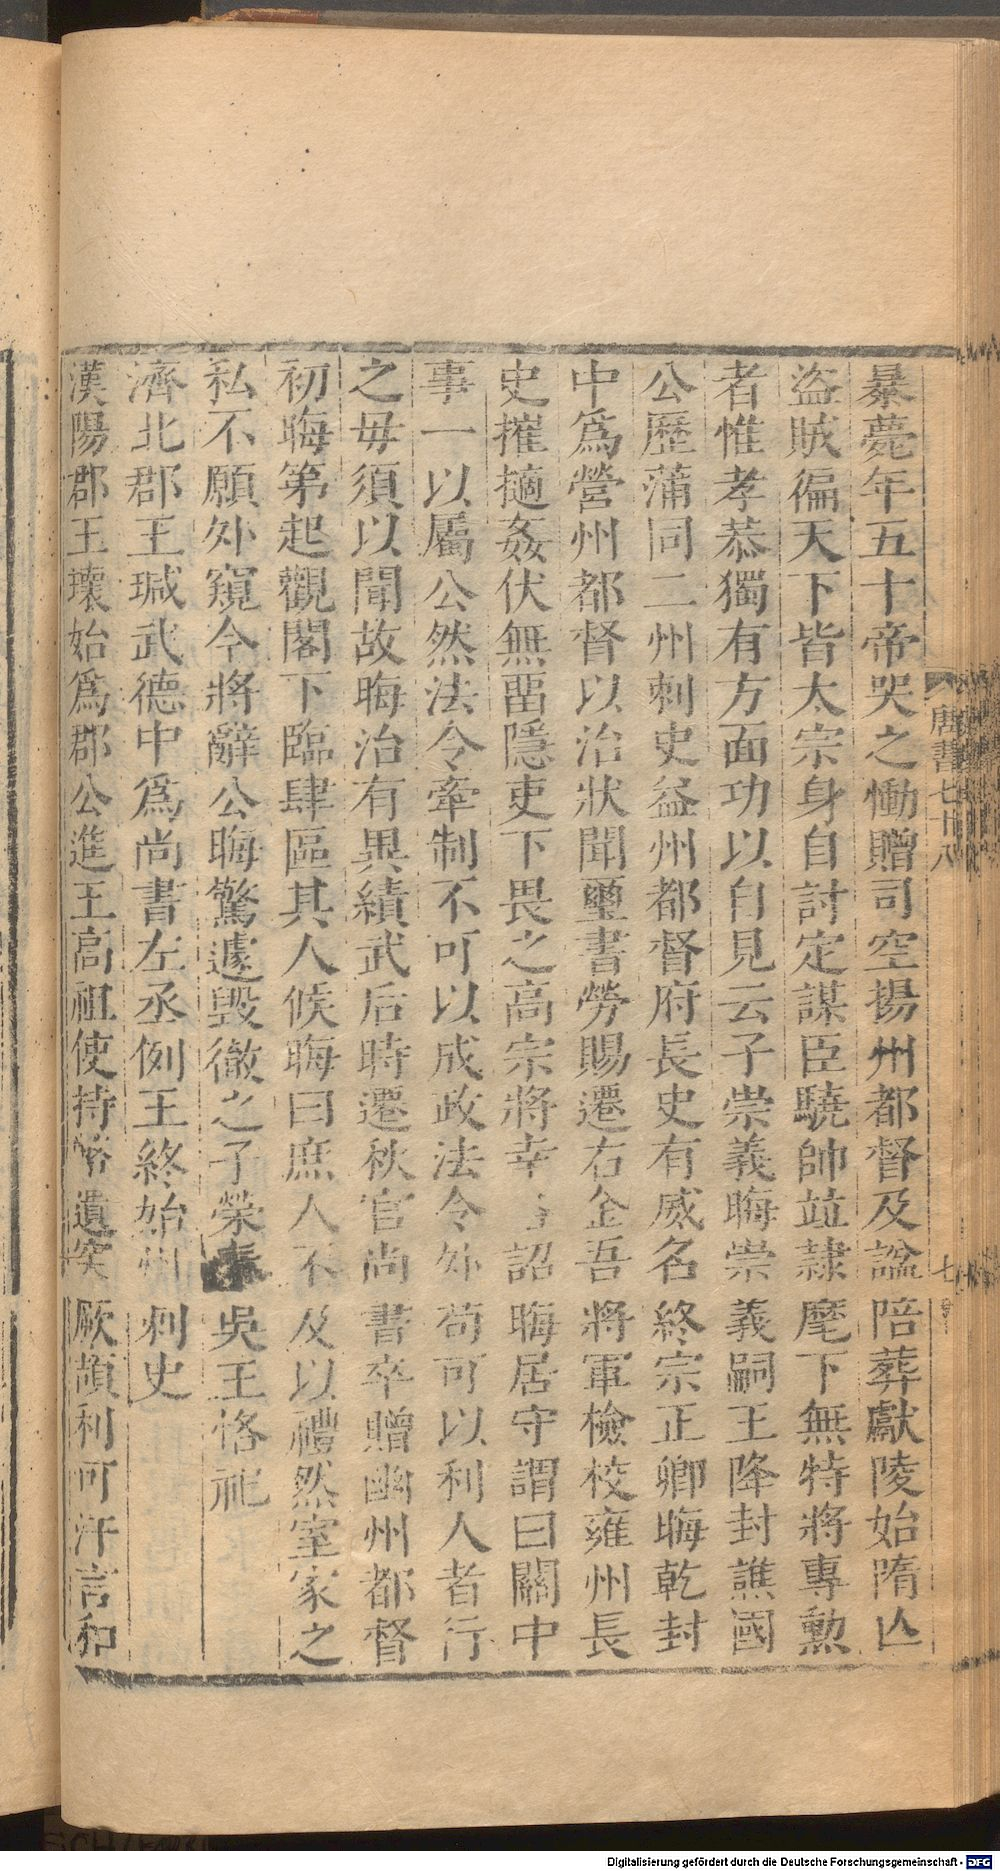 暴薨年五十帝哭之慟贈司空揚州都督及諡陪葬獻陵始隋亾
盜賊徧天下皆太宗身自討定謀臣驍帥竝隷麾下無特將專勲
者惟孝恭獨有方面功以自見云子崇義晦崇義嗣王降封譙國
公歷蒲同二州刺史益州都督府長史有威名終宗正卿晦乾封
中爲營州都督以治狀聞璽書勞賜遷右金吾將軍檢校雍州長
史摧擿姦伏無畱隱吏下畏之高宗將幸 詔晦居守謂曰關中
事一以屬公然法令牽制不可以成政法令外苟可以利人者行
之毋須以聞故晦治有異績武后時遷秋官尚書卒贈幽州都督
初晦第起觀閣下臨肆區其人候晦曰庶人不及以禮然室家之
私不願外窺今將辭公晦驚遽毀徹之子榮 吳王恪祀
濟北郡王瑊武德中爲尚書左丞例王終始州刺史
漢陽郡王瓌始爲郡公進王高祖使持 遺突厥頡利可汗言和
唐書七十八
七
Digitalisierung gefördert durch die Deutsche Forschungsgemeinschaft - DFG